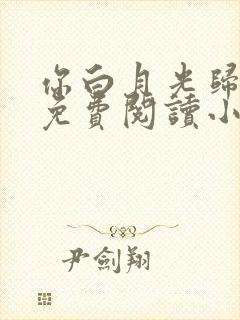 你白月光歸
免費閱讀小
尹劍翔